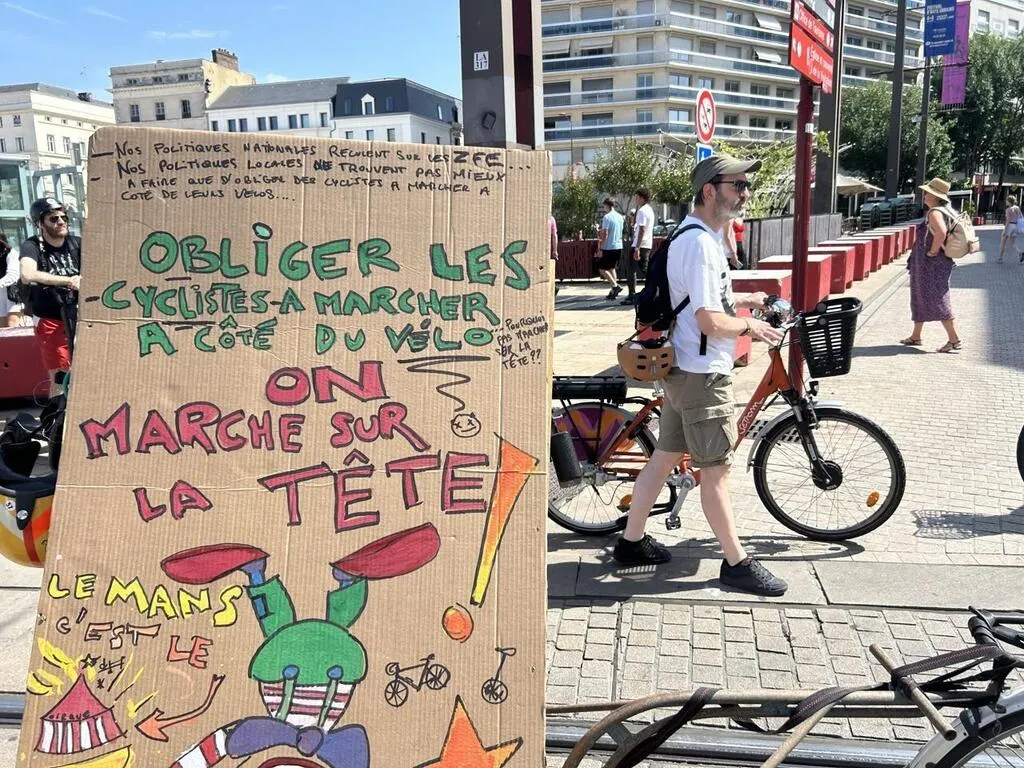 — NOS POLITIQUES NATIONALES RECULENT SUR LES ZFE...
NOS POLITIQUES LOCALES NE TROUVENT PAS MIEUX
A FAIRE QUE D'OBLIGER DES CYCLISTES A MARCHER A
COTÉ DE LEURS VELOS....
OBLIGER LES
CYCLISTES A MARCHER
A CÔTÉ DU VÉLO
...POURQUOI
PAS MARCHER
SUR LA
TÊTE??
ON
MARCHE SUR
LA TÊTE !
LE MANS
C'EST LE
CIRQUE
LA
317